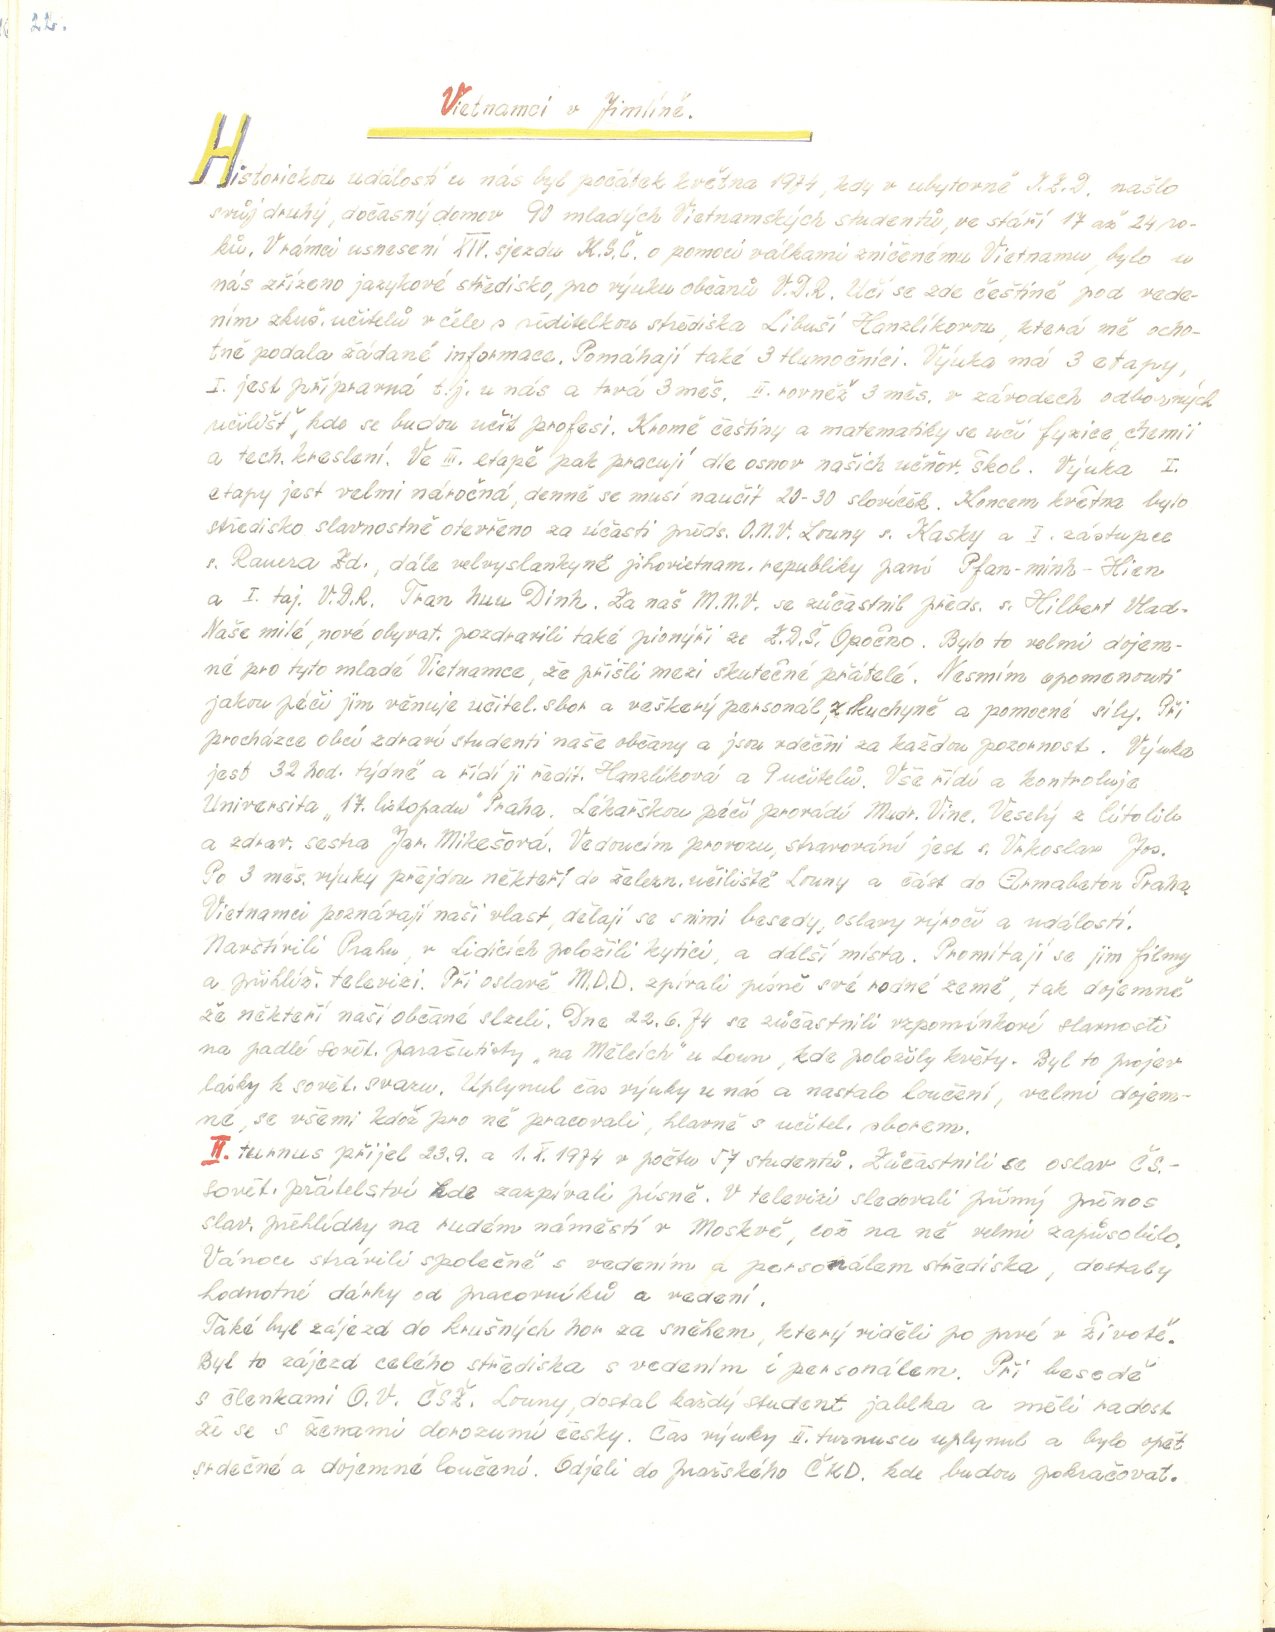 22.
Vietnamci v Jimlíně.
Historickou událostí u nás byl počátek května 1974, kdy v ubytovně J.Z.D. našlo
svůj druhý, dočasný domov 90 mladých Vietnamských studentů, ve stáří 17 až 24 ro-
ků. V rámci usnesení XIV. sjezdu K.S.Č. o pomoci válkami zničenému Vietnamu, bylo u
nás zřízeno jazykové středisko, pro výuku občanů V.D.R. Učí se zde češtině pod vede-
ním zkuš. učitelů v čele s ředitelkou střediska Libuší Hanzlíkovou, která mě ocho-
tně podala žádané informace. Pomáhají také 3 tlumočníci. Výuka má 3 etapy,
I. jest přípravná t.j. u nás a trvá 3 měs. II. rovněž 3 měs. v závodech odborných
učilišť, kde se budou učit profesi. Kromě češtiny a matematiky se učí fyzice, chemii
a tech. kreslení. Ve III. etapě pak pracují dle osnov našich učňov. škol. Výuka I.
etapy jest velmi náročná, denně se musí naučit 20-30 slovíček. Koncem května bylo
středisko slavnostně otevřeno za účasti předs. O.N.V. Louny s. Kasky a I. zástupce
s. Rauera Zd., dále velvyslankyně jihovietnam. republiky paní Pfan-minh-Hien
a I. taj. V.D.R. Tran huu Dinh. Za naš M.N.V. se zůčastnil předs. s. Hilbert Vlad.
Naše milé, nové obyvat. pozdravili také pionýři ze Z.D.Š. Opočno. Bylo to velmi dojem-
né pro tyto mladé Vietnamce, že přišli mezi skutečné přátelé. Nesmím opomenouti
jakou péči jim věnuje učitel. sbor a veškerý personál, z kuchyně a pomocné síly. Při
procházce obcí zdraví studenti naše občany a jsou vděčni za každou pozornost. Výuka
jest 32 hod. týdně a řídí ji ředit. Hanzlíková a 9 učitelů. Vše řídí a kontroluje
Universita „17. listopadu" Praha. Lékařskou péči provádí Mudr. Vinc. Veselý z Cítolib
a zdrav. sestra Jar. Mikešová. Vedoucím provozu, stravování jest s. Vrkoslav Jos.
Po 3 měs. výuky přejdou někteří do železn. učiliště Louny a část do Armabeton Praha.
Vietnamci poznávají naši vlast, dělají se s nimi besedy, oslavy výročí a událostí.
Navštívili Prahu, v Lidicích položili kytici, a dálší místa. Promítají se jim filmy
a přihlíž. televizi. Při oslavě M.D.D. zpívali písně své rodné země, tak dojemně
že někteří naší občané slzeli. Dne 22.6.74 se zůčastnili vzpomínkové slavnosti
na padlé sovět. parašutisty „na Mělcích" u Loun, kde položily květy. Byl to projev
lásky k sovět. svazu. Uplynul čas výuky u nás a nastalo loučení, velmi dojem-
né, se všemi kdož pro ně pracovali, hlavně s učitel. sborem.
II. turnus přijel 23.9. a 1.X.1974 v počtu 57 studentů. Zůčastnili se oslav ČS.-
sovět. přátelství kde zazpívali písně. V televizi sledovali přímý přenos
slav. přehlídky na rudém náměstí v Moskvě, což na ně velmi zapůsobilo.
Vánoce strávili společně s vedením a personálem střediska, dostaly
hodnotné dárky od pracovníků a vedení.
Také byl zájezd do krušných hor za sněhem, který viděli po prvé v životě.
Byl to zájezd celého střediska s vedením i personálem. Při besedě
s členkami O.V. ČSŽ. Louny, dostal každý student jablka a měli radost
že se s ženami dorozumí česky. Čas výuky II. turnusu uplynul a bylo opět
srdečné a dojemné loučení. Odjeli do pražského ČKD. kde budou pokračovat.